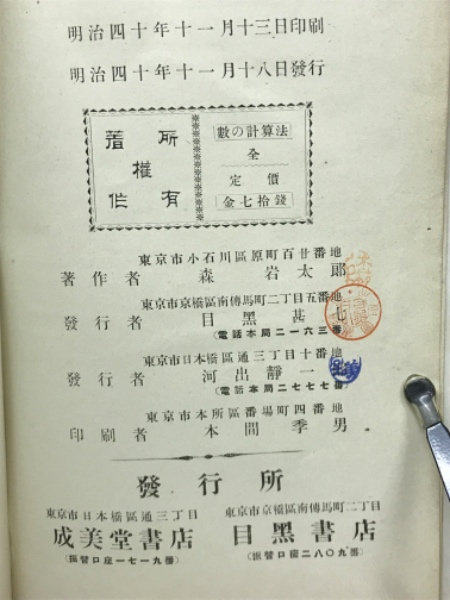 明治四十年十一月十三日印刷
明治四十年十一月十八日發行
著作權所有
數の計算法
全
定價
金七拾錢
東京市小石川區原町百廿番地
著作者 森岩太郎
東京市京橋區南傳馬町二丁目五番地
發行者 目黑甚七
(電話本局二一六三番)
東京市日本橋區通三丁目十番地
發行者 河出靜一
(電話本局二七七七番)
東京市本所區番場町四番地
印刷者 本間季男
發行所
東京市日本橋區通三丁目
成美堂書店
(振替口座一七一九番)
東京市京橋區南傳馬町二丁目
目黑書店
(振替口座二八〇九番)